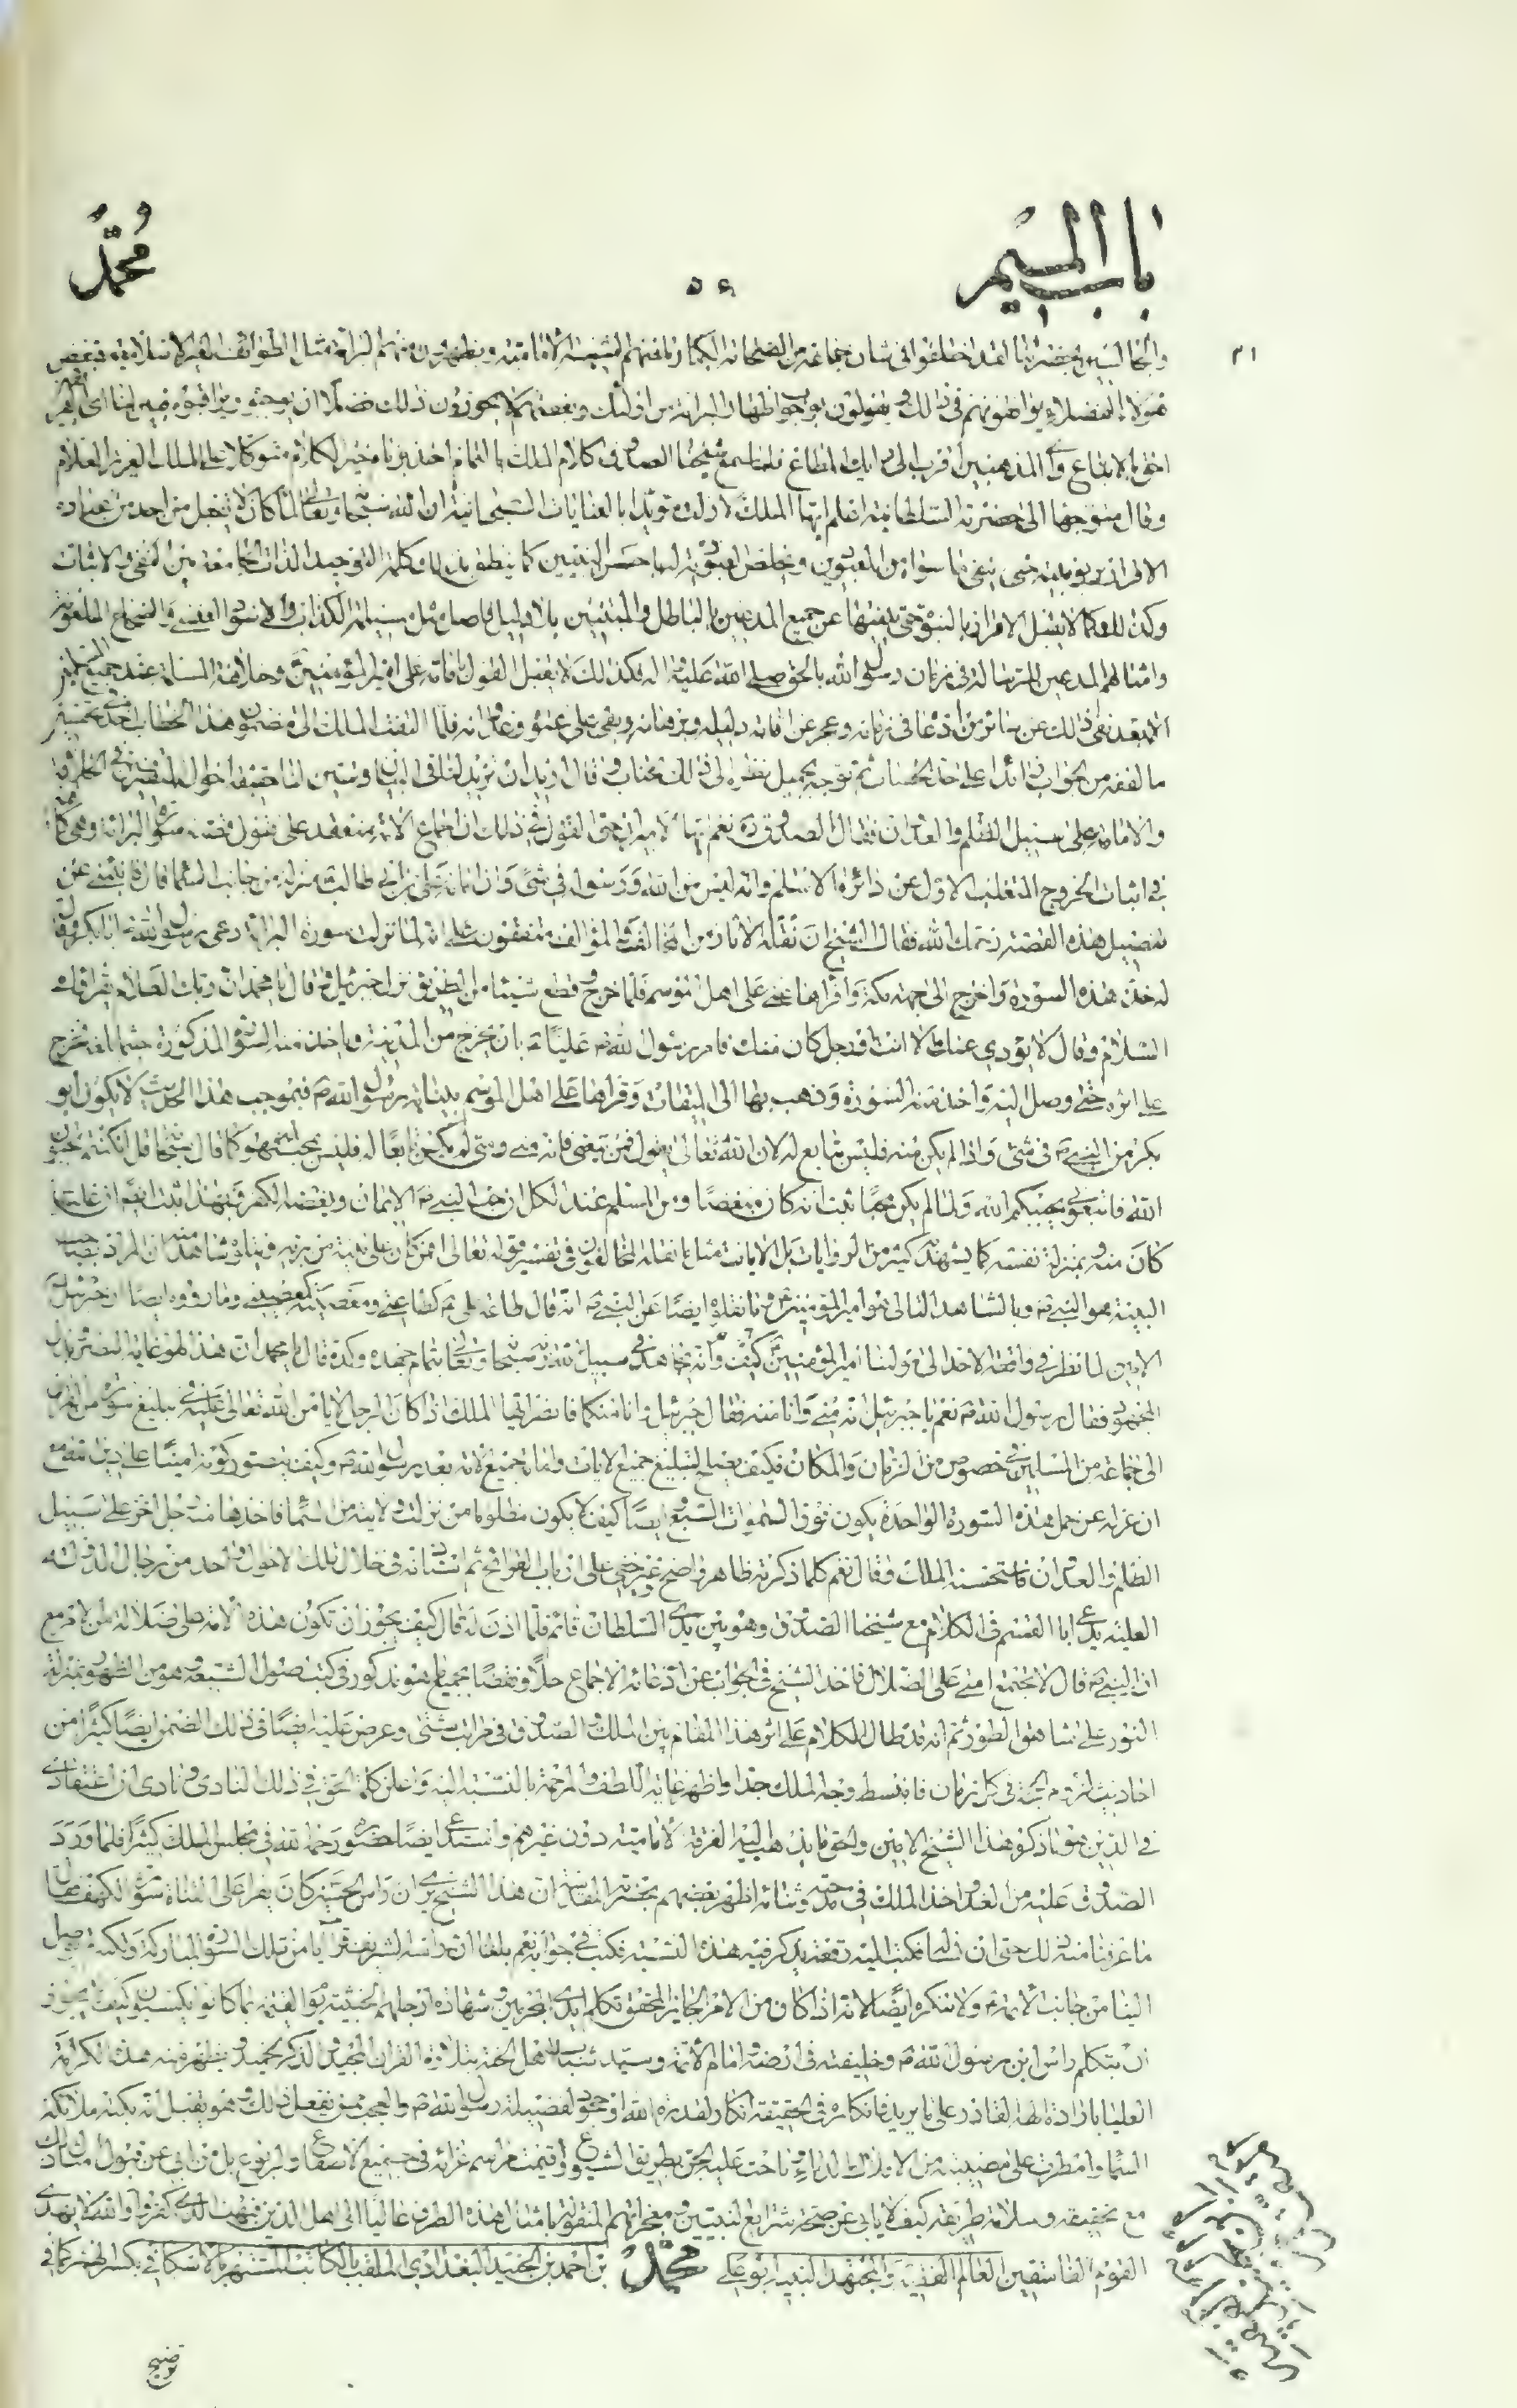 باب الميم
٥٤
محمد
والمخالفين بحضرتنا لقد اختلفوا في شان جماعة من الصحابة الكبار فانهم الشيعة الامامية ويظهرون منهم البراءة مثال الطوائف الغير الاسلامية فبعض
هؤلاء الفضلاء يوافقونهم في ذلك ويقولون بوجوب اظهار البرائة من اولئك وبعضهم لا يجوزون ذلك فضلا ان
احق بالاتباع واي المذهبين اقرب الى رايك المطاع فلما سمع شيخنا الصدوق كلام الملك بالتمام اخذ بزمام خير الكلام متوكلا على الملك العزيز العلام
وقال متوجها الى حضرته السلطانية اعلم ايها الملك لا زلت مؤيدا بالعنايات السبحانية ان الله سبحانه وتعالى لما كان لا يقبل من احد من عباده
الاقرار بربوبيته حتى ينفي ما سواه من المعبودين ويخلص العبودية لرب العالمين كما ينطق بذلك كلمة التوحيد الجامعة بين النفي والاثبات
وكذلك كما لا يقبل الاقرار بالنبوة حتى ينفيها عن جميع المدعين بالباطل والمتنبئين بلا دليل حاصل مثل مسيلمة الكذاب والاسود العنسي والسجاح الملعونة
وامثالهم المدعين للرسالة في زمان رسول الله بالحق صلى الله عليه واله فكذلك لا يقبل القول بامامة علي امير المؤمنين وخلافته المسلمة عند جميع المسلمين
الا بعد نفي ذلك عن سائر من ادعاها في زمانه وعجز عن اقامة دليله وبرهانه وبقي على عتوه وعدوانه فلما التفت الملك الى مضمون هذا الخطاب
ما لفقه من الجواب ثم توجه بجميل نظره الى ذلك الجناب وقال اريد ان تزيد لنا في البيان وتبين لنا حقيقة احوال المتصرفين في الخلافة
والامامة على سبيل الظلم والعدوان فقال الصدوق ره نعم ايها الامير ان حق القول في ذلك ان اجماع الامة منعقد على قبول قصة سورة البراءة وهي كافية
في اثبات خروج المتغلب الاول عن دائرة الاسلام وانه ليس من الله ورسوله في شئ وان امامة علي بن ابي طالب منزلة من جانب السماء قال فانبئني عن
تفصيل هذه القصة رحمك الله فقال الشيخ ان نقلة الاثار من المخالف والمؤالف متفقون على انه لما نزلت سورة البراءة دعى رسول الله ص ابا بكر وقال
له خذ هذه السورة واخرج الى جهة مكة واقراها عني على اهل الموسم فلما خرج وقطع شيئا من الطريق نزل جبرئيل ع قال يا محمد ان ربك العلام يقرئك
السلام وقال لا يؤدي عنك الا انت او رجل كان منك فامر رسول الله ص عليا ع بان يخرج من المدينة وياخذ منه السورة المذكورة حيثما لقيه فخرج
على اثره حتى وصل اليه واخذ منه السورة وذهب بها الى الميقات وقراها على اهل الموسم بنيابة رسول الله ص فبموجب هذا الحديث لا يكون ابو
بكر من النبي ص في شئ واذا لم يكن منه فليس بتابع له لان الله تعالى يقول فمن تبعني فانه مني ومتى لم يكن تابعا له فليس بمحبه له وكما قال سبحانه قل ان كنتم تحبون
الله فاتبعوني يحببكم الله ولما لم يكن محبا ثبت انه كان مبغضا ومن المسلم عند الكل ان حب النبي ص الايمان وبغضه الكفر وبهذا ثبت ايضا ان عليا
كان منه وبمنزلة نفسه كما يشهد به كثير من الروايات بل الايات مثل ما نقله المخالفون في تفسير قوله تعالى افمن كان على بينة من ربه ويتلوه شاهد منه ان المراد بصاحب
البينة هو النبي ص وبالشاهد التالي هو امير المؤمنين ع وما نقلوه ايضا عن النبي ص انه قال طاعة علي ع كطاعتي ومعصيته كمعصيتي وما رووه ايضا ان جبرئيل
الامين لما نظر في واقعة الاحد الى مولينا امير المؤمنين ع كيف وانه يجاهد في سبيل الله سبحانه وتعالى بتمام جهده وكده قال يا محمد ان هذا لهو غاية النصر وبذل
المجهود فقال رسول الله ص نعم يا جبرئيل انه مني وانا منه فقال جبرئيل وانا منكما فانظر ايها الملك اذا كان الرجل لا يامن الله تعالى عليه في تبليغ سورة من القرآن
الى جماعة من المسلمين في خصوص من الزمان والمكان فكيف يصلح لتبليغ جميع الايات وامامة جميع الامة بعد رسول الله ص وكيف يتصور كونه امينا على دين الله مع
ان عزله عن حمل هذه السورة الواحدة يكون من فوق السموات السبع ايضا كيف لا يكون مظلوما من نزلت ولايته من السماء فاخذها منه رجل اخر على سبيل
الظلم والعدوان فاستحسنه الملك وقال نعم كلما ذكرته ظاهر واضح غير خفي على ارباب القرائح ثم انه في خلال تلك الاحوال واحد من رجال الدولة
العلية يدعى ابا القسم في الكلام مع شيخنا الصدوق وهو بين يدي السلطان قائم فلما اذن له قال كيف يجوز ان تكون هذه الامة على ضلالة من الامر مع
ان النبي ص قال لا تجتمع امتي على الضلال فاخذ الشيخ في الجواب عن ادعائه الاجماع حلا ونقضا بجميع ما هو مذكور في كتب اصول الشيعة وهو من الظهور بمنزلة
النور على شاهق الطور ثم انه قد طال الكلام على اثر هذا المقام بين الملك والصدوق في مراتب شتى وعرض عليه ايضا في ذلك الضمن ايضا كثيرا من
احاديث لزوم الحجة في كل زمان فانبسط وجه الملك جدا واظهر غاية اللطف والمرحمة بالنسبة اليه واعلن كلمة الحق في ذلك النادي ونادى ان اعتقادي
في الدين هو ما ذكره هذا الشيخ الامين والحق ما يذهب اليه الفرقة الامامية دون غيرهم واستدعى ايضا حضوره رحمه الله في مجلس الملك كثيرا فلما ورد
الصدوق عليه من الغد اخذ الملك في مدحه وثنائه اظهر بعضهم بحضرته المقدسة ان هذا الشيخ يرى ان راس الحسين كان يقرا على القناة سورة الكهف فقال
ما عرفنا منه ذلك حتى ان نسأله فكتب اليه رقعة يذكر فيه هذه النسبة فكتب في جوابه نعم بلغنا ان راسه الشريف قرا آيا من تلك السورة المباركة ولكنه لم يصل
الينا من جانب الائمة ع ولا ننكره ايضا لانه اذا كان من الامر الجايز المحقق تكلم ايدي المجرمين وشهادة ارجلهم الخبيثة يوم القيمة بما كانوا يكسبون كيف لا يجوز
ان يتكلم راس ابن رسول الله ص وخليفته في ارضه وامام الائمة وسيد شباب اهل الجنة بتلاوة القرآن المجيد والذكر الحميد ويظهر منه هذه الكرامة
العليا بارادة الهه القادر على ما يريد فانكاره في الحقيقة انكار لقدرة الله او جحود لفضيلة رسول الله ص والعجب ممن يفعل ذلك وهو يقبل انه بكته ملائكة
السماء وامطرت على مصيبته من الافلاك الدماء وناحت عليه الجن بطريق الشيوع واقيمت مراسم عزائه في جميع الاصقاع والربوع بل من ابى عن قبول امثال ذلك
مع تحقيقه وسلامة طريقه كيف لا يابى عن صحة شرايع النبيين ومعجزاتهم المنقولة بامثال هذه الطرق غالبا الى اهل الدين فبهت الذي كفر والله لا يهدي
القوم الفاسقين العالم الفقيه والمجتهد النبيه ابو علي محمد بن احمد بن الجنيد البغدادي الملقب بالكاتب المشتهر بالاسكافي بكسر الهمزة كما في
توضيح